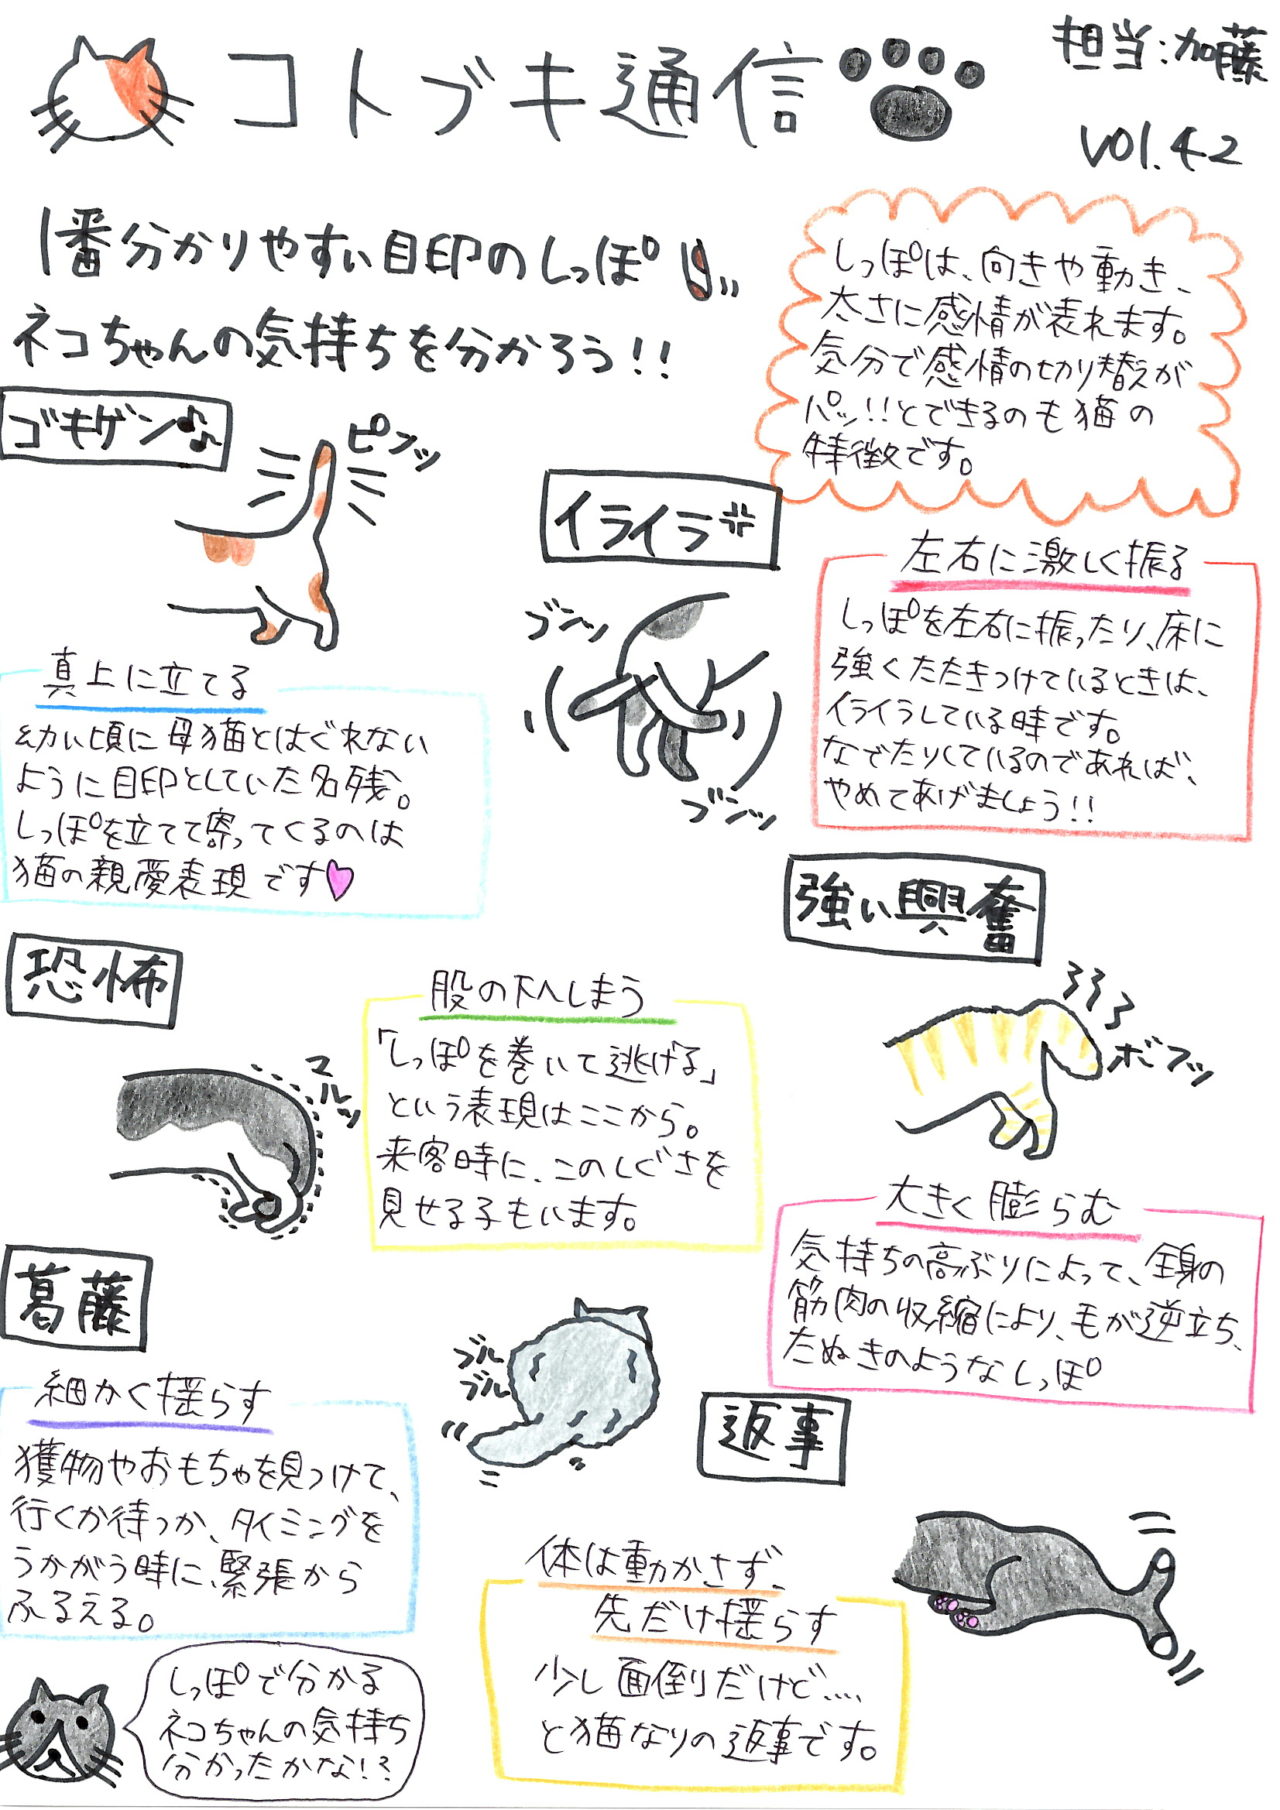 コトブキ通信
担当:加藤
vol.42
1番分かりやすい目印のしっぽ
ネコちゃんの気持ちを分かろう!!
しっぽは、向きや動き、
太さに感情が表れます。
気分で感情の切り替えが
パッ!!とできるのも猫の
特徴です。
ゴキゲン♪
ピーンッ
真上に立てる
幼い頃に母猫とはぐれない
ように目印としていた名残。
しっぽを立てて寄ってくるのは
猫の親愛表現です♡
イライラ
ブンッ
ブンッ
左右に激しく振る
しっぽを左右に振ったり、床に
強くたたきつけているときは、
イライラしている時です。
なでたりしているのであれば、
やめてあげましょう!!
恐怖
クルッ
股の下へしまう
「しっぽを巻いて逃げる」
という表現はここから。
来客時に、このしぐさを
見せる子もいます。
強い興奮
ボフッ
大きく膨らむ
気持ちの高ぶりによって、全身の
筋肉の収縮により、毛が逆立ち、
たぬきのようなしっぽ
葛藤
ブル
ブル
細かく揺らす
獲物やおもちゃを見つけて、
行くか待つか、タイミングを
うかがう時に、緊張から
ふるえる。
返事
体は動かさず、
先だけ揺らす
少し面倒だけど....
と猫なりの返事です。
しっぽで分かる
ネコちゃんの気持ち
分かったかな!?